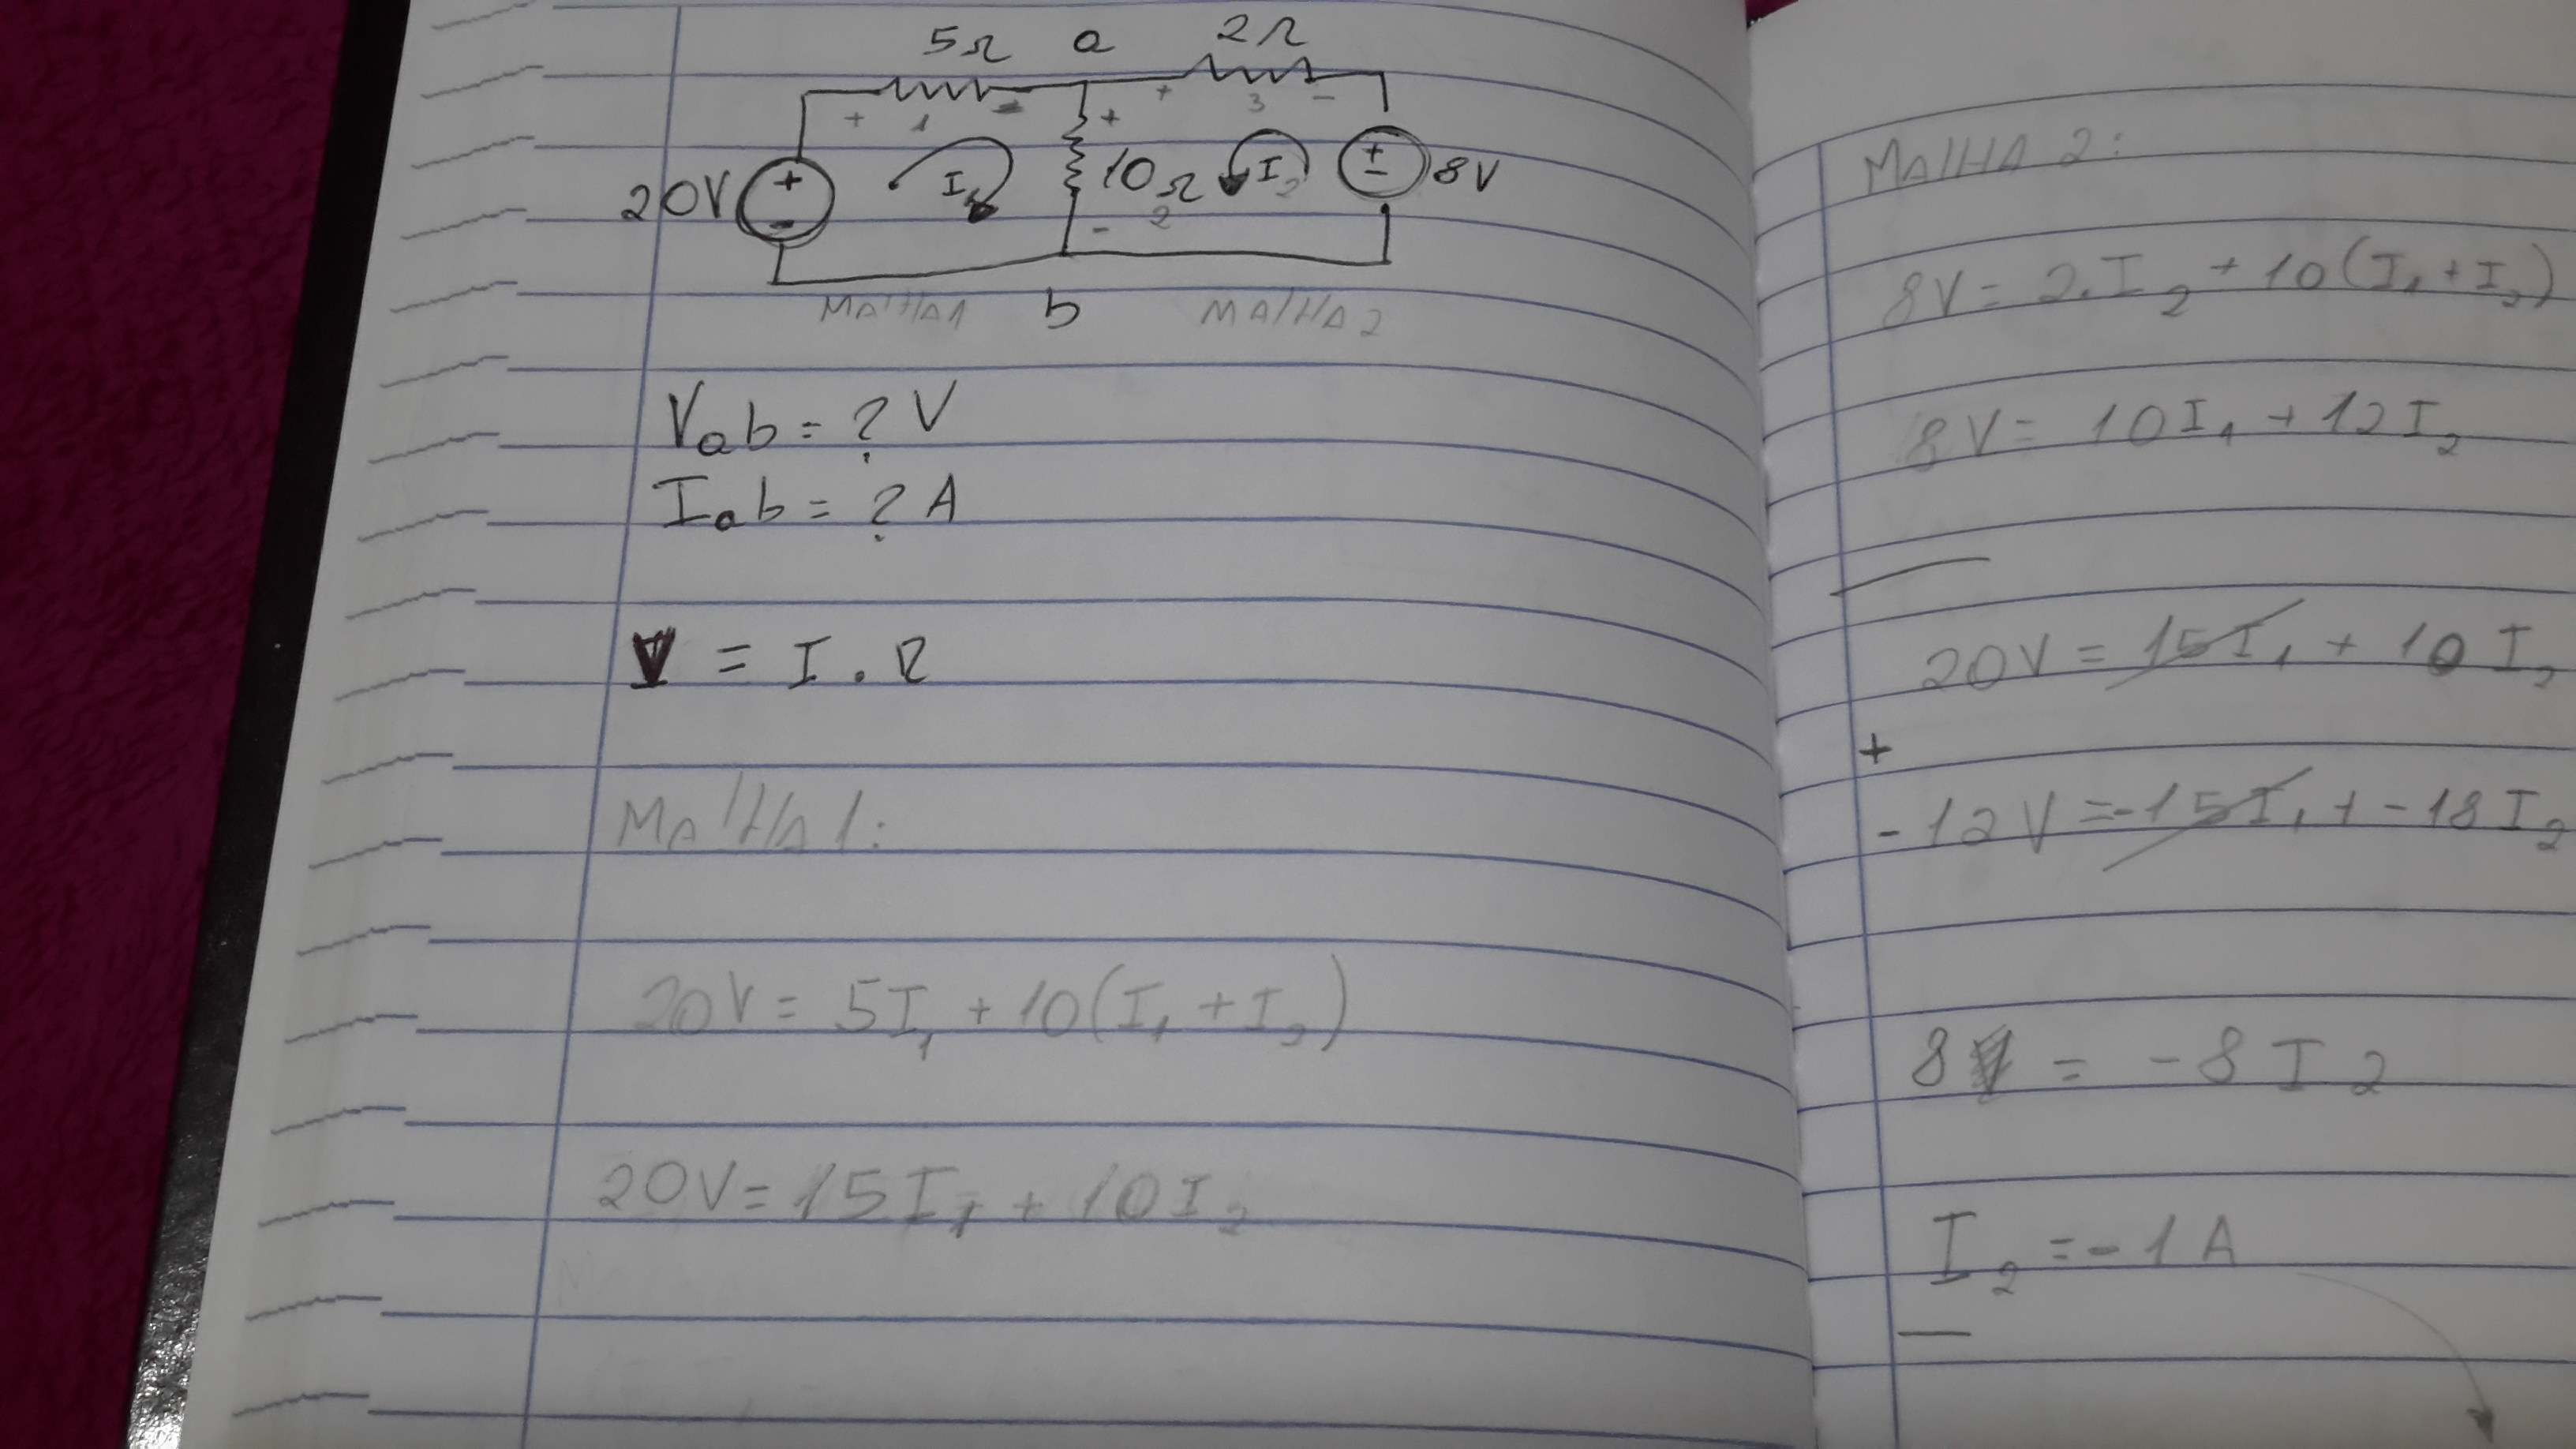 5Ω a 2Ω
+ 1 - + + 3 -
20V + - I1 10Ω 2 - I2 + - 8V
MAlHA1 b MAlHA2
Vab = ? V
Iab = ? A
V = I . R
MAlHA 1:
20V = 5I1 + 10(I1 + I2)
20V = 15I1 + 10I2
MAlHA 2:
8V = 2.I2 + 10(I1 + I2)
8V = 10I1 + 12I2
20V = 15I1 + 10I2
+
-12V = -15I1 + -18I2
8 = -8I2
I2 = -1A